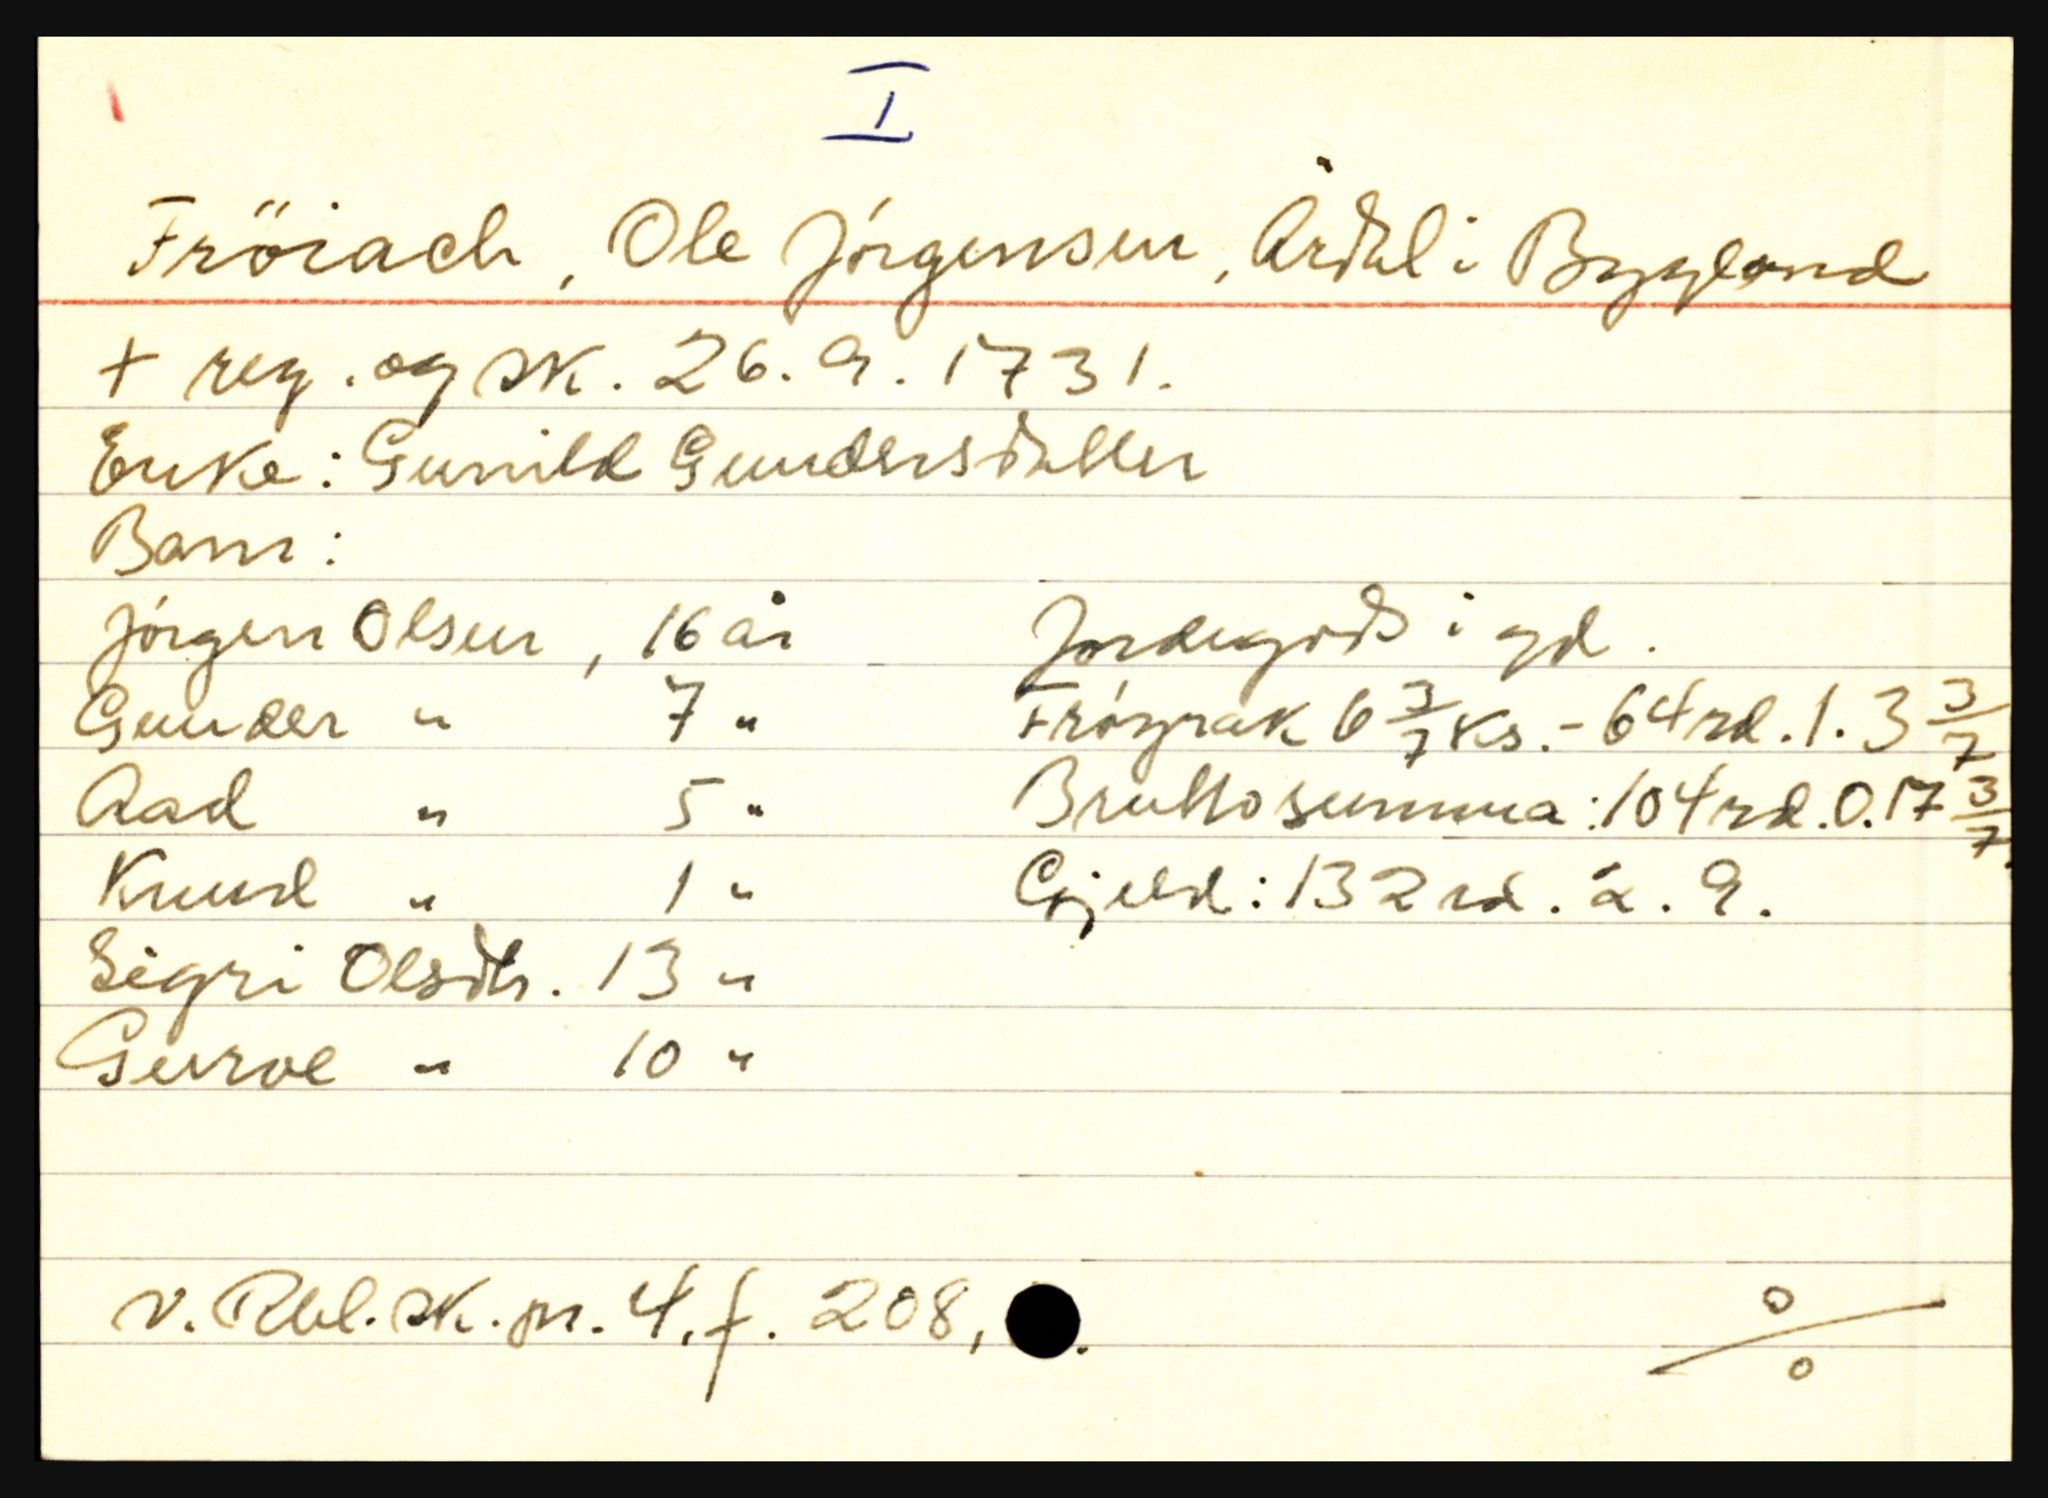 I
Fröiach, Ole Jörgensen, Årdal i Bygland
+ reg. og sk. 26.9.1731.
Enke: Gunild Gundersdatter
Barn:
Jórgen Olsen, 16 år
Gunder " 7 "
Aad " 5 "
Knud " 1 "
Sigri Olsdtr. 13 "
Gurroe " 10 "
Jordegods i gd.
Fröyrak 6 3/7 ks. - 64 rd. 1. 3 3/7
Bruttosumma: 104 rd. 0. 17 3/7.
Gjeld: 132 rd. 2. 9.
v. Rbl. sk. pr. 4. f. 208,
o/o